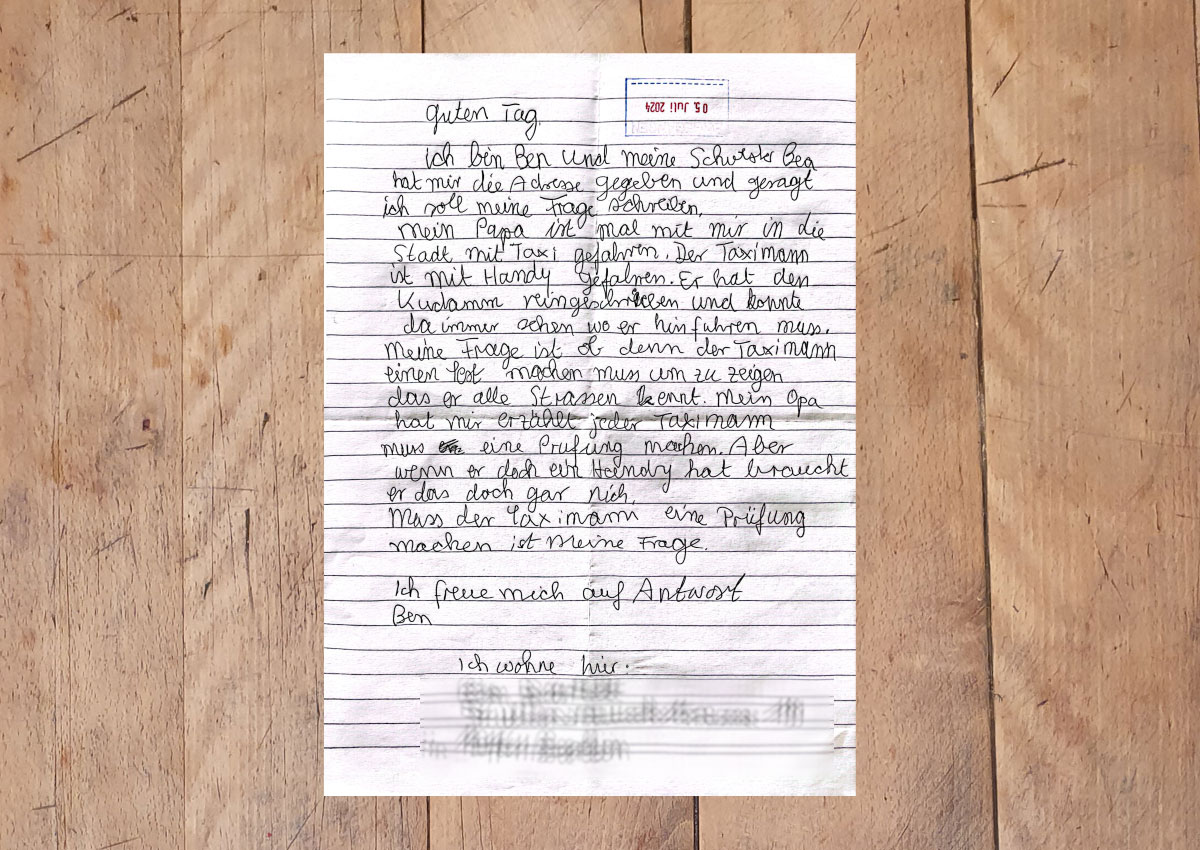 guten Tag.
05. Juli 2024
ich bin Ben und meine Schwester Bea
hat mir die Adresse gegeben und gesagt
ich soll meine Frage schreiben.
mein Papa ist mal mit mir in die
Stadt mit Taxi gefahren. Der Taximann
ist mit Handy gefahren. Er hat den
Kudamm reingeschrieben und konnte
da immer sehen wo er hinfahren muss.
Meine Frage ist ob denn der Taximann
einen Test machen muss um zu zeigen
das er alle Strassen kennt. Mein Opa
hat mir erzählt jeder Taximann
mus eine Prufung machen. Aber
wenn er doch ein Handy hat braucht
er das doch gar nich.
Muss der Taximann eine Prüfung
machen ist meine Frage.
Ich freue mich auf Antwort
Ben
Ich wohne hier: